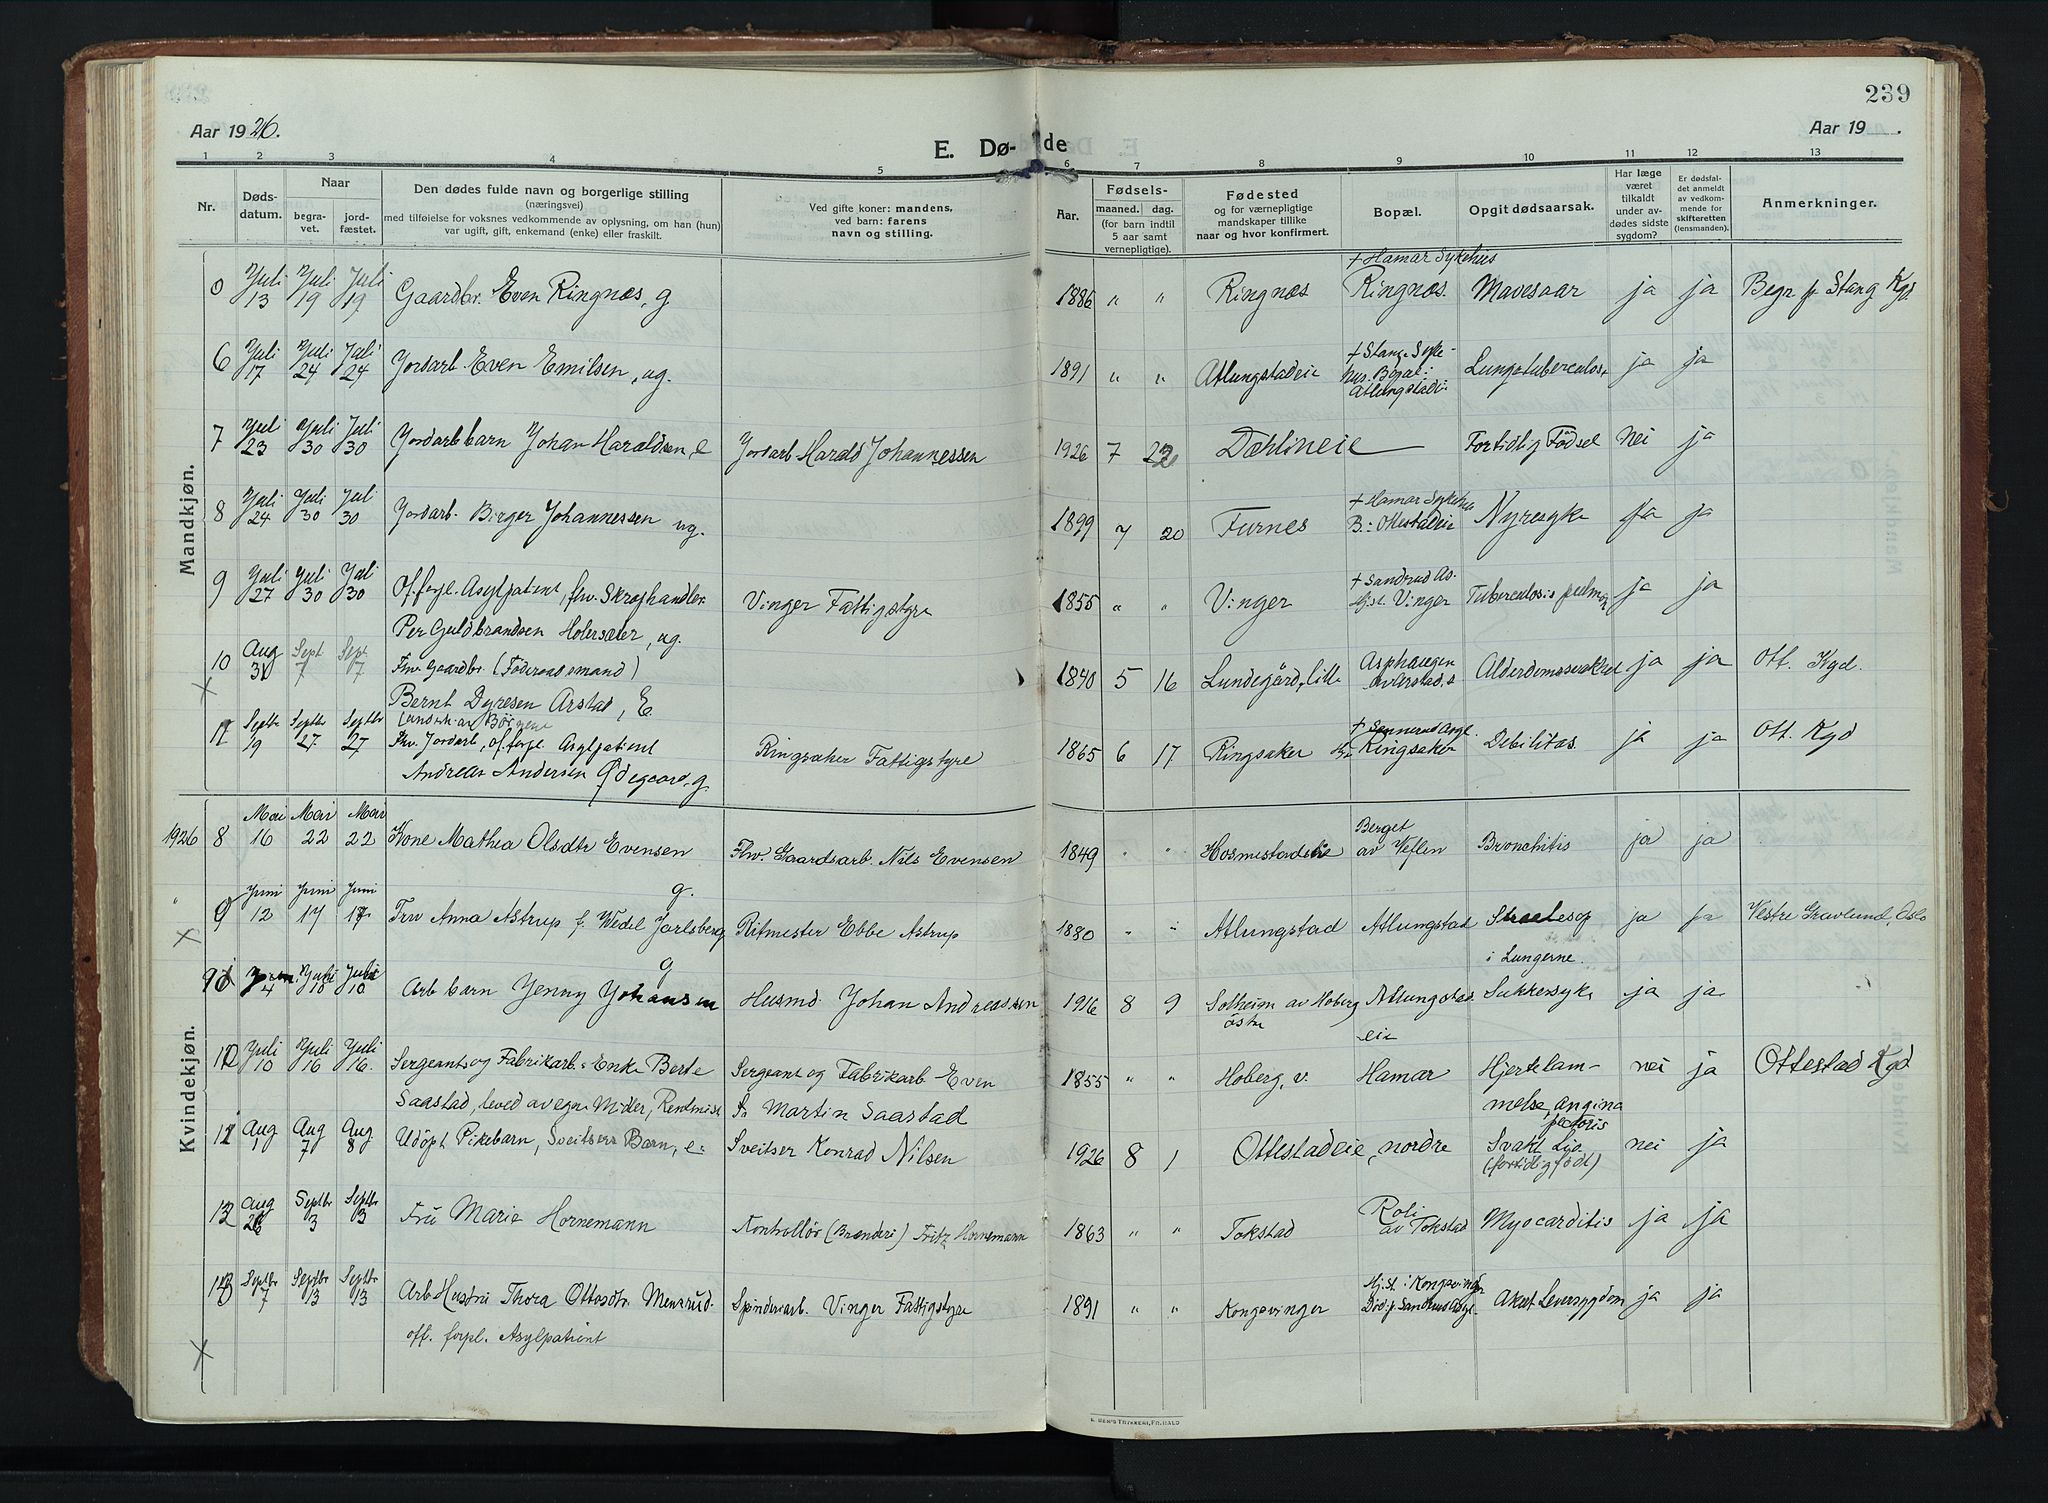 239
Aar 1926.
Aar 19 .
E. Dø- de
1 2 3 4 5 6 7 8 9 10 11 12 13
Nr.
Døds-
datum.
Naar
begra-
vet.
jord-
fæstet.
Den dødes fulde navn og borgerlige stilling
(næringsvei)
med tilføielse for voksnes vedkommende av oplysning, om han (hun)
var ugift, gift, enkemand (enke) eller fraskilt.
Ved gifte koner: mandens,
ved barn: farens
navn og stilling.
Aar.
Fødsels-
maaned. dag.
(for barn indtil
5 aar samt
vernepligtige).
Fødested
og for værnepligtige
mandskaper tillike
naar og hvor konfirmert.
Bopæl.
Opgit dødsaarsak.
Har læge
været
tilkaldt
under av-
dødes sidste
sygdom?
Er dødsfal-
det anmeldt
av vedkom-
mende for
skifteretten
(lensmanden).
Anmerkninger.
Mandkjøn.
+ Hamar Sykehus
0 Juli 13 Juli 19 Juli 19 Gaardbr. Even Ringnæs, g 1886 " " Ringnæs Ringnæs. Mavesaar ja ja Begr p. Stang Kgd.
6 Juli 17 Juli 24 Juli 24 Jordarb. Even Emilsen, ug. 1891 " " Atlungstadeie + Stange Syke-
hus. Bopæl:
Atlungstadei
ja ja
7 Juli 23 Juli 30 Juli 30 Jordarb barn Johan Haraldsen, e Jordarb Harald Johannessen 1926 7 22 Dæhlineie Fortidlig Fødsel nei ja
8 Juli 24 Juli 30 Juli 30 Jordarb. Birger Johannessen ug. 1899 7 20 Furnes + Hamar Sykehus
B.: Ottestadeie Nyresyke ja ja
9 Juli 27 Juli 30 Juli 30 Of. forpl. Asylpatient, fhv. Skraphandler
Per Guldbrandsen Holersæter, ug.
Vinger Fattigstyre 1855 " " Vinger + Sandrud As.
Hjst. Vinger Tuberculosis pulmon ja ja
10 Aug 31 Sept 7 Sept 7 Fhv. Gaardbr. (Føderaadsmand)
Bernt Dyresen Arstad, E.
1840 5 16 Lundegård, lille Asphaugen
av Arstad, s Alderdomssvakhet ja ja Ott. Kgd.
11 Septbr 19 Septbr 27 Septbr 27 Fhv. Jordarb, of. forpl. Asylpatient
Andreas Andersen Ødegaard, g.
Ringsaker Fattigstyre 1865 6 17 Ringsaker Ringsaker Debilitas. ja ja Ott. Kgd
Kvindekjøn.
1926 8 Mai 16 Mai 22 Mai 22 Kone Mathea Olsdtr Evensen Fhv. Gaardsarb. Nils Evensen 1849 " " Berget
av Veflen Bronchitis ja ja
" 9 Juni 12 Juni 17 Juni 17 Fru Anna Astrup f. Wedel Jarlsberg g. Ritmester Ebbe Astrup 1880 " " Atlungstad Atlungstad
i Lungerne. ja ja Vestre Gravlund, Oslo
10 4 Juli 10 Juli 10 Arb barn Jenny Johansen g Husmd. Johan Andreassen 1916 8 9 Solheim av Hoberg
østre Atlungstad
eie Sukkersyke ja ja
Juli 10 Juli 16 Juli 16. Sergeant og Fabrikarb. Enke Berte
Saastad, leved av egne Midler,
Sergeant og Fabrikarb Even
Martin Saastad
1855 " " Hoberg, v. Hamar Hjertelam-
melse, angina
pectoris nei ja Ottestad Kgd.
Aug 1 Aug 7 Aug 8 Udøpt Pikebarn, Sveitsers Barn, e. Sveitser Konrad Nilsen 1926 8 1 Ottestadeie, nordre
(fortidlig født) nei ja
Aug 26 Septbr 3 Septbr 3 Fru Marie Hornemann Kontrollør (Brænderi) Fritz Hornemann 1863 " " Tokstad Roli
av Tokstad Myocarditis ja ja
Septbr 7 Septbr 13 Septbr 13 Arb Hustru Thora Ottosdtr. Mensrud.
off. forpl. Asylpatient
Spinderiarb. Vinger Fattigstyre 1891 " " Kongsvinger Hjst. i Kongsvinger
Akut Leversygdom ja ja